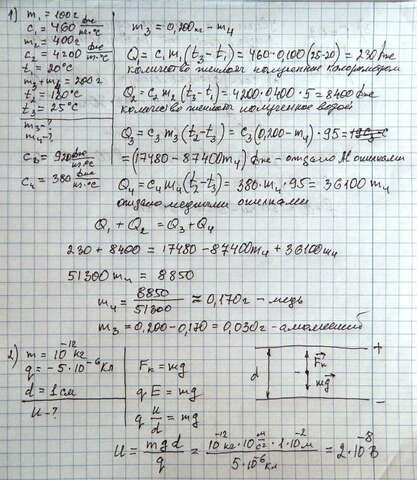 1) m₁ = 100г
c₁ = 460 Дж/кг·°C
m₂ = 400г
c₂ = 4200 Дж/кг·°C
t₁ = 20°C
m₃ + m₄ = 200г
t₂ = 120°C
t₃ = 25°C
m₃ - ?
m₄ - ?
c₃ = 920 Дж/кг·°C
c₄ = 380 Дж/кг·°C
m₃ = 0,200кг - m₄
Q₁ = c₁m₁(t₃-t₁) = 460·0,100(25-20) = 230 Дж
количество теплоты полученное калориметром
Q₂ = c₂m₂(t₃-t₁) = 4200·0,400·5 = 8400 Дж
количество теплоты полученное водой
Q₃ = c₃m₃(t₂-t₃) = c₃(0,200-m₄)·95 =
= (17480 - 87400m₄) Дж - отдано Al опилками
Q₄ = c₄m₄(t₂-t₃) = 380·m₄·95 = 36100m₄
отдано медными опилками
Q₁ + Q₂ = Q₃ + Q₄
230 + 8400 = 17480 - 87400m₄ + 36100m₄
51300m₄ = 8850
m₄ = 8850/51300 ≈ 0,170г - медь
m₃ = 0,200 - 0,170 = 0,030г - алюминий
2) m = 10⁻¹² кг
q = -5·10⁻⁶ Кл
d = 1 см
U - ?
Fк = mg
qE = mg
q U/d = mg
U = mgd/q = 10⁻¹²кг·10 м/с²·1·10⁻²м / 5·10⁻⁶Кл = 2·10⁻⁸ В
+
d
Fк
-
mg
-